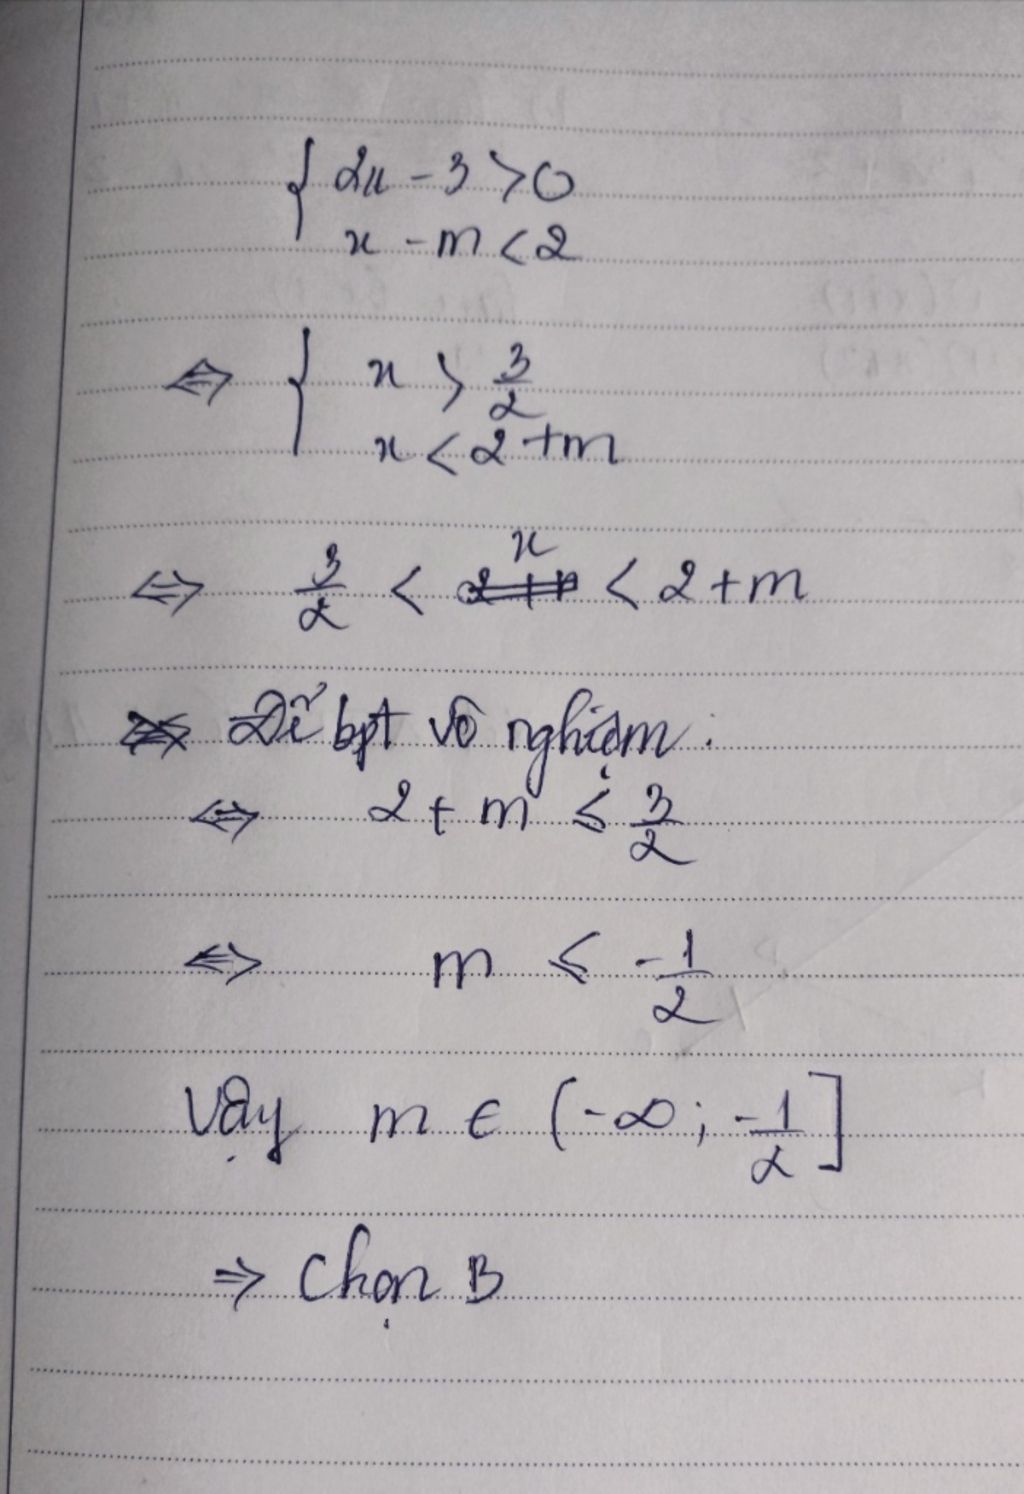 { 2x - 3 > 0
x - m < 2
⇔ { x > 3/2
x < 2 + m
⇔ 3/2 < x < 2 + m
Để bpt vô nghiệm:
⇔ 2 + m ≤ 3/2
⇔ m ≤ -1/2
Vậy m ∈ (-∞; -1/2]
⇒ Chọn B